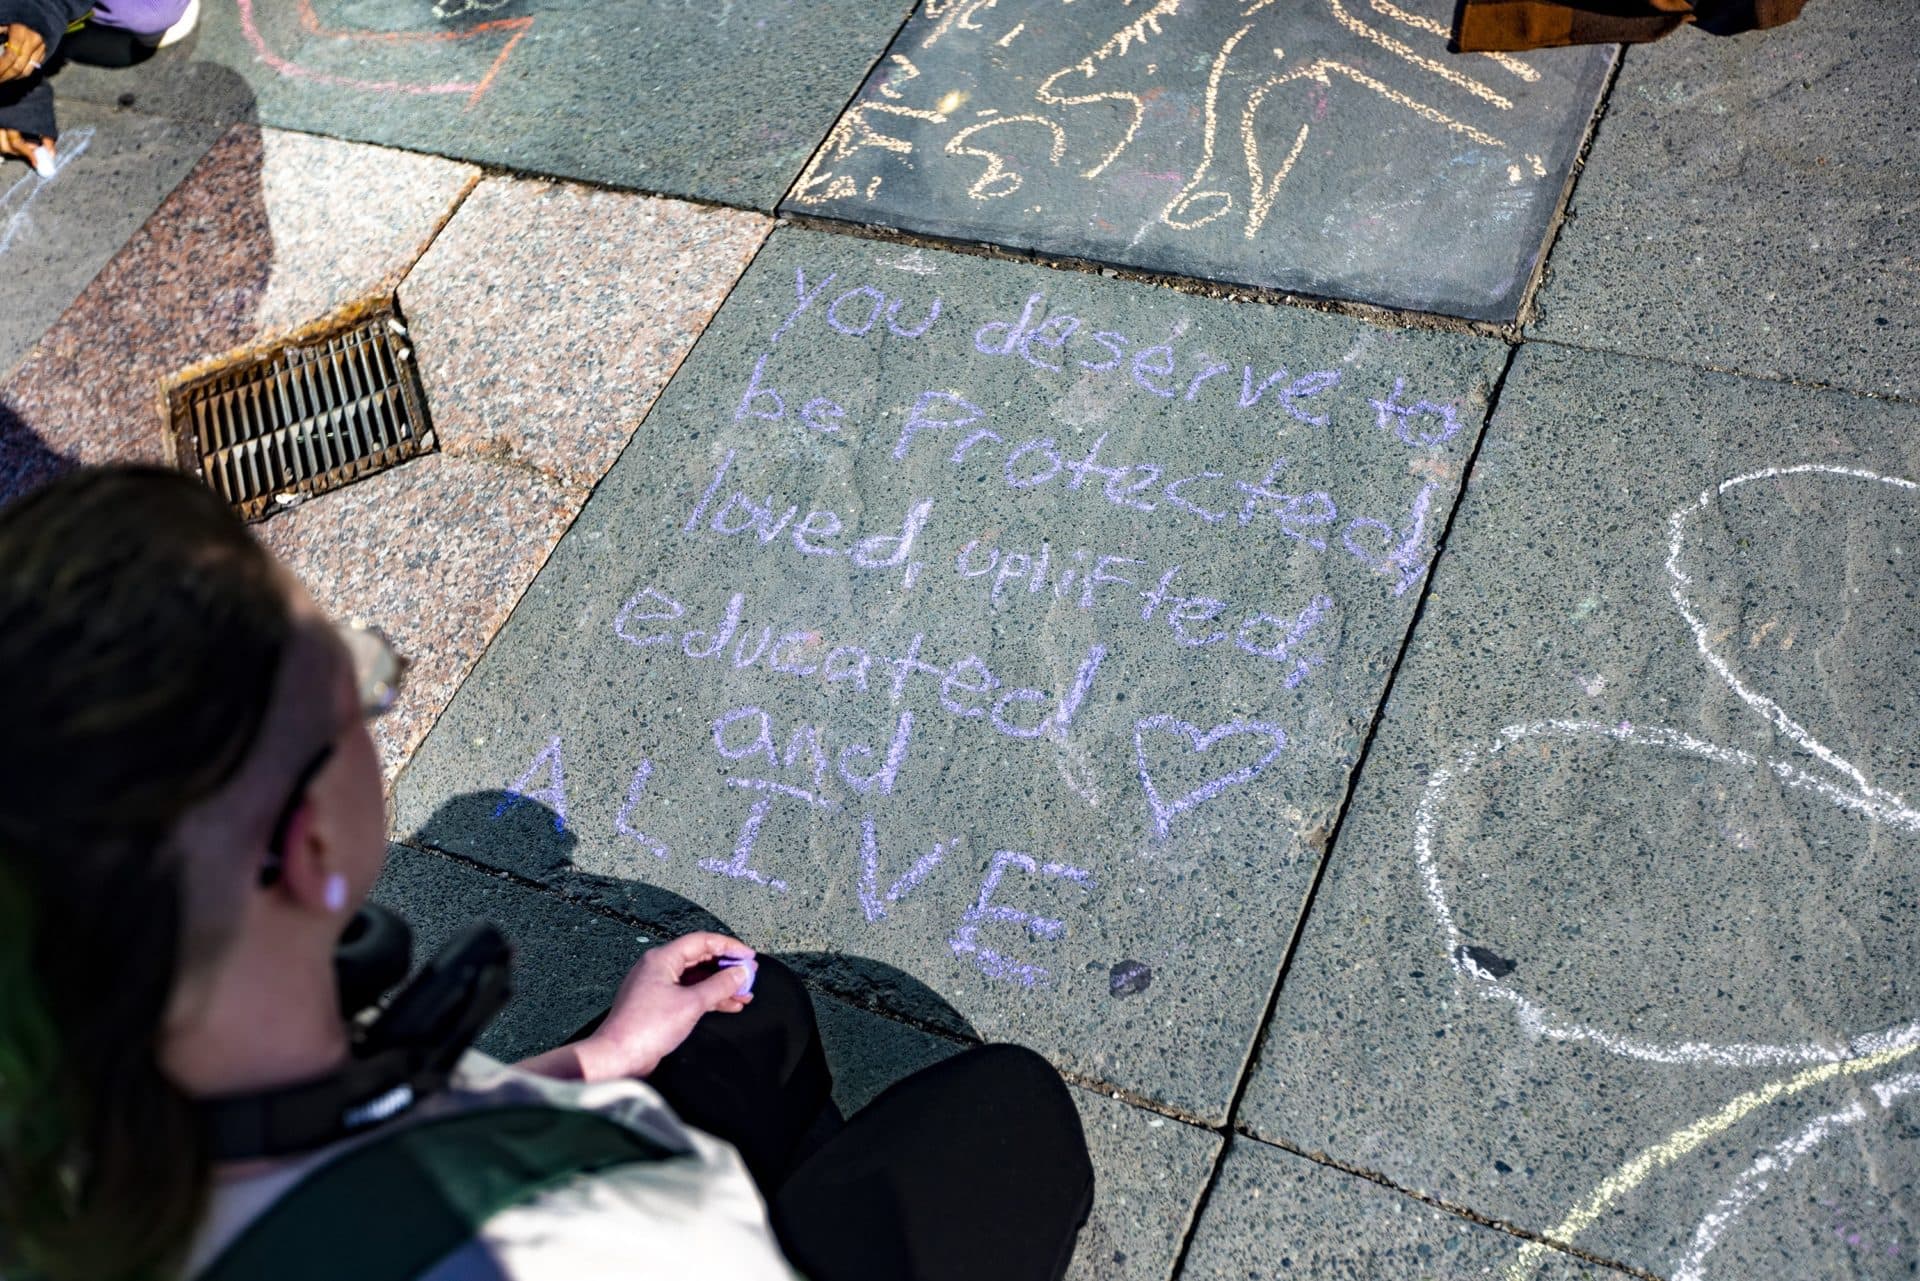 you deserve to
be Protected,
loved, uplifted,
educated
and
ALIVE.